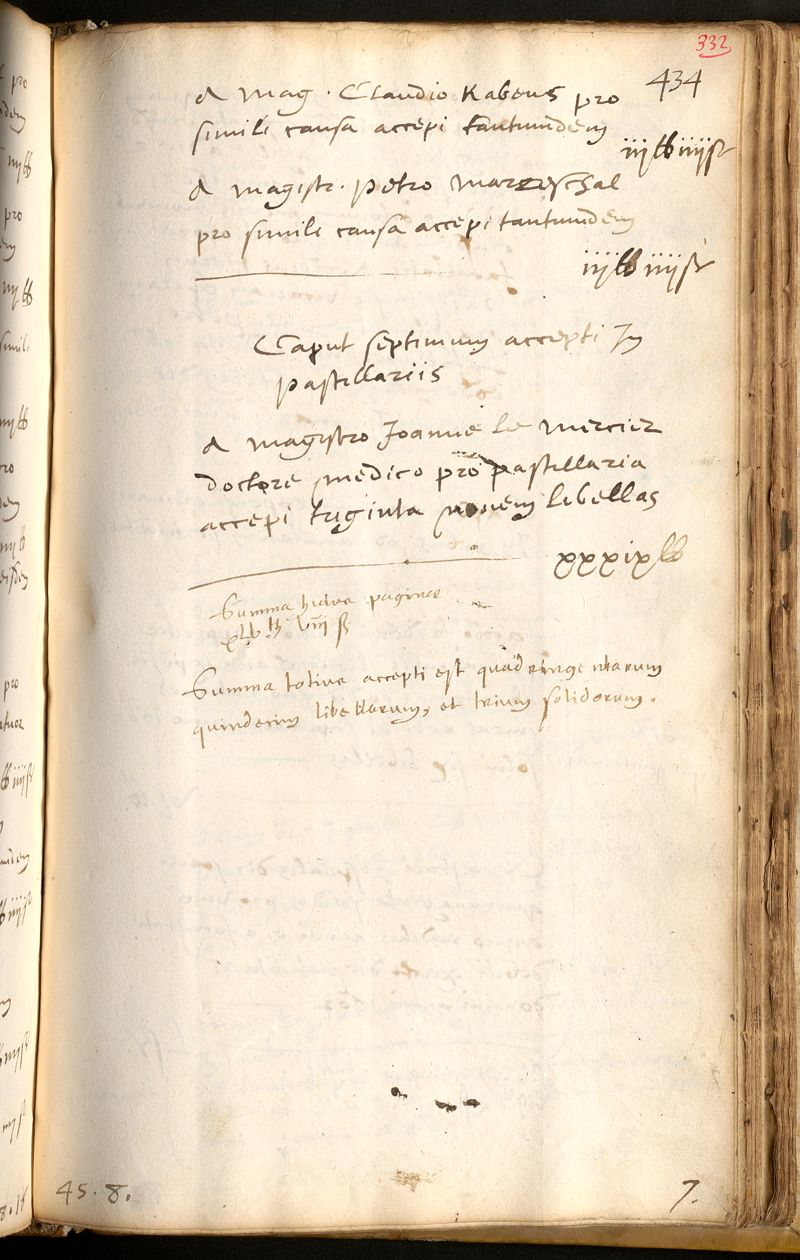 332
434
A mag. Claudio Rabeus pro
simili causa accepi tantumdem
iij lb iiij ß
A magistr. petro marreschal
pro simili causa accepi tantumdem
iij lb iiij ß
Caput septimum accepti In
pastillariis
A magistro Joanne Le mercier
doctore medico pro pastillaria
accepi triginta novem libellas
xxxix lb
Summa huius paginae
xlv lb viii ß
Summa totius accepti est quadringentarum
quindecim libellarum, et trium solidorum.
45. 8.
7.